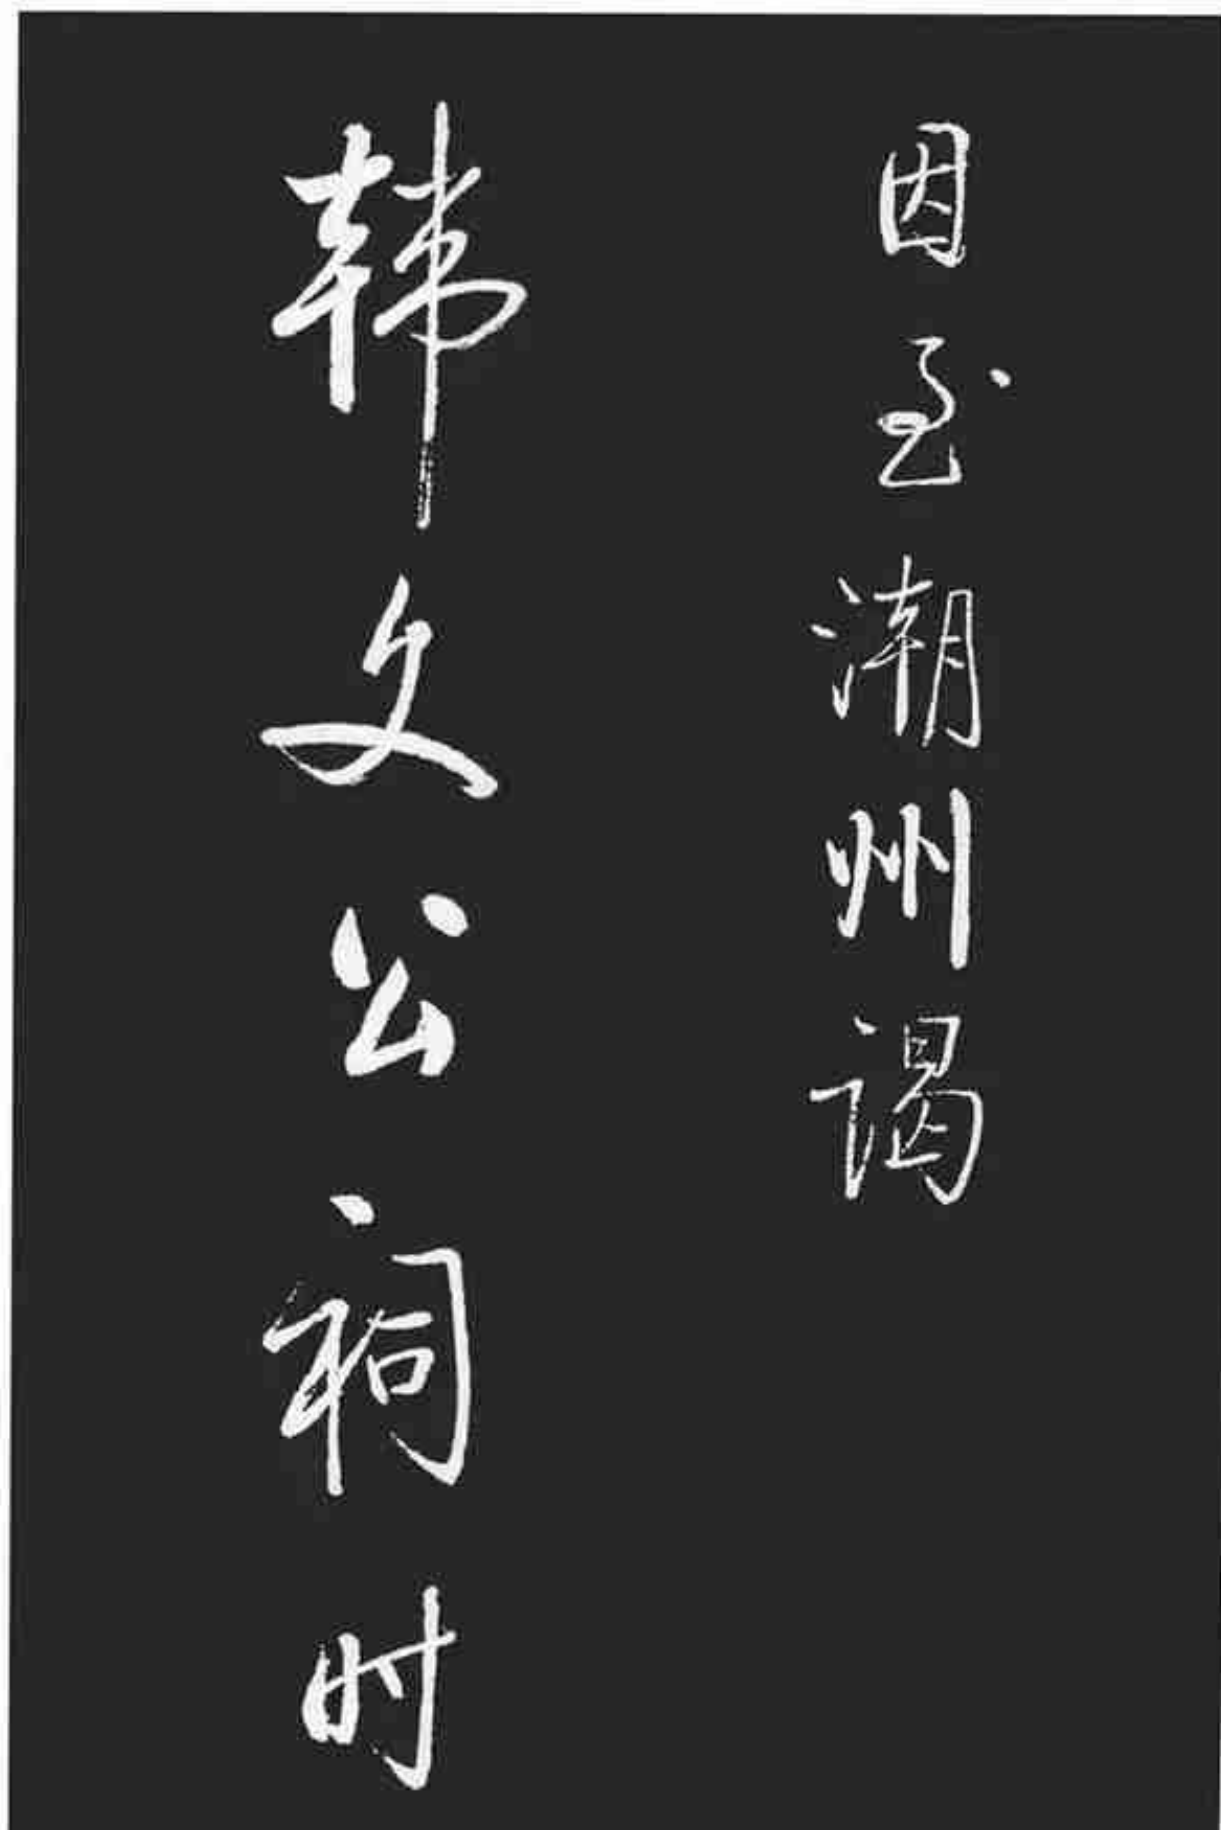 因至潮州谒
韩文公祠时